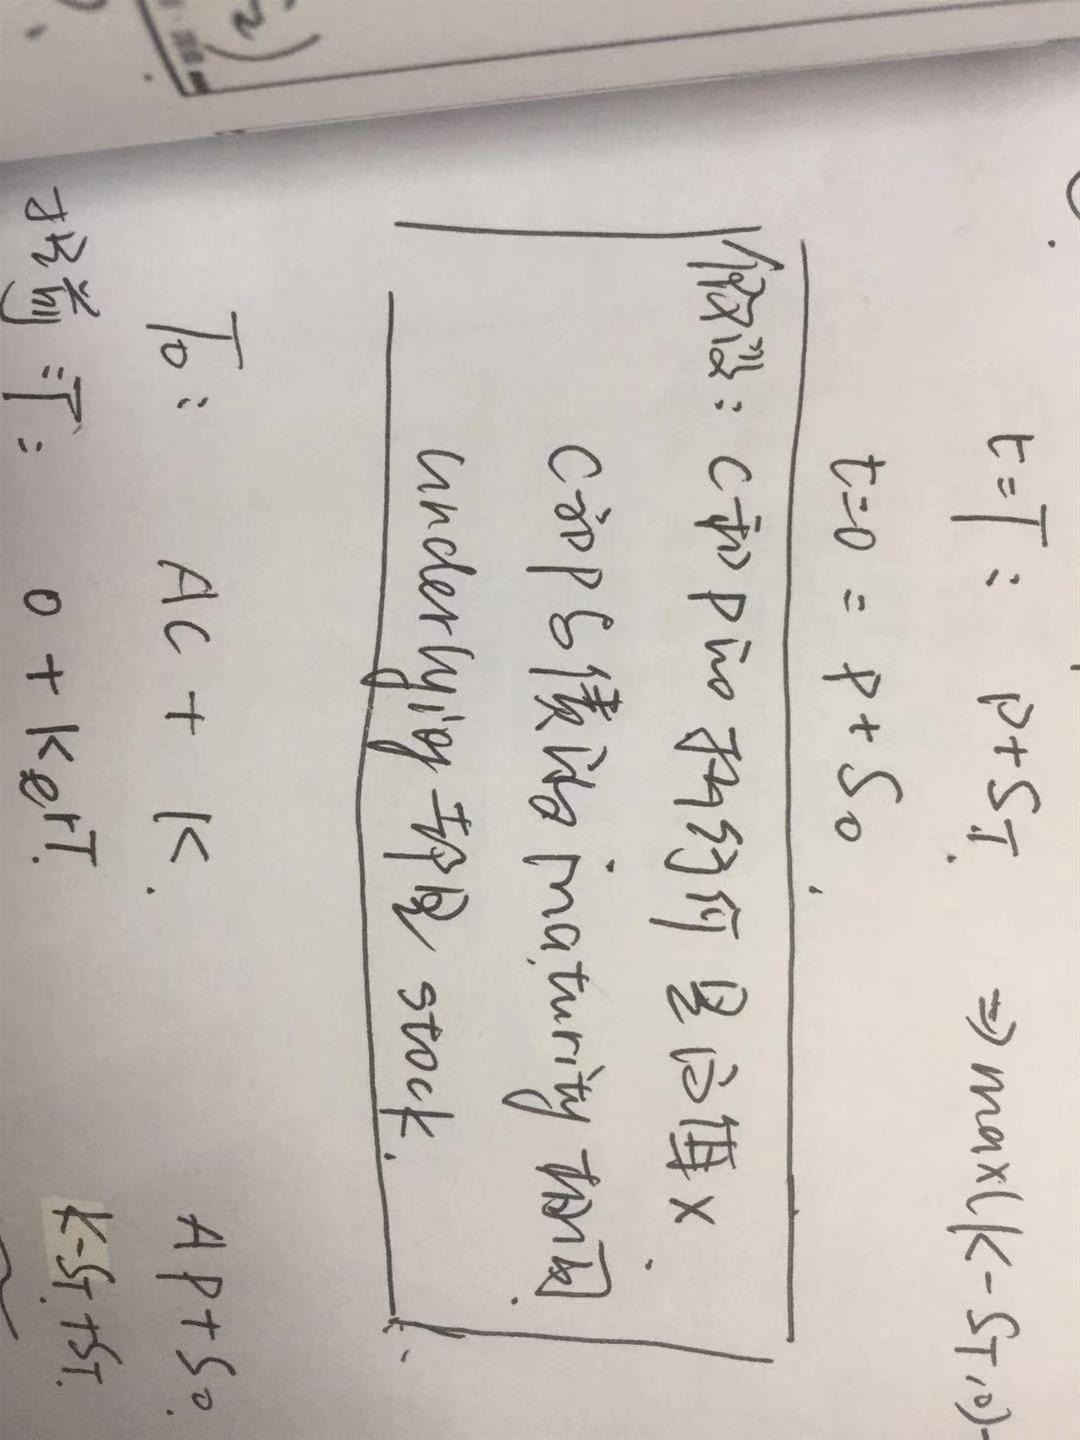 t=T: P+ST. ⇒ max(K-ST,0)
t=0 = P+S0.
假设: C和P的执行价是应得X.
C和P与债的maturity相同.
underlying 都是 stock.
T0: AC + K. AP+S0.
提前=T: 0 + KerT. K-ST.+ST.